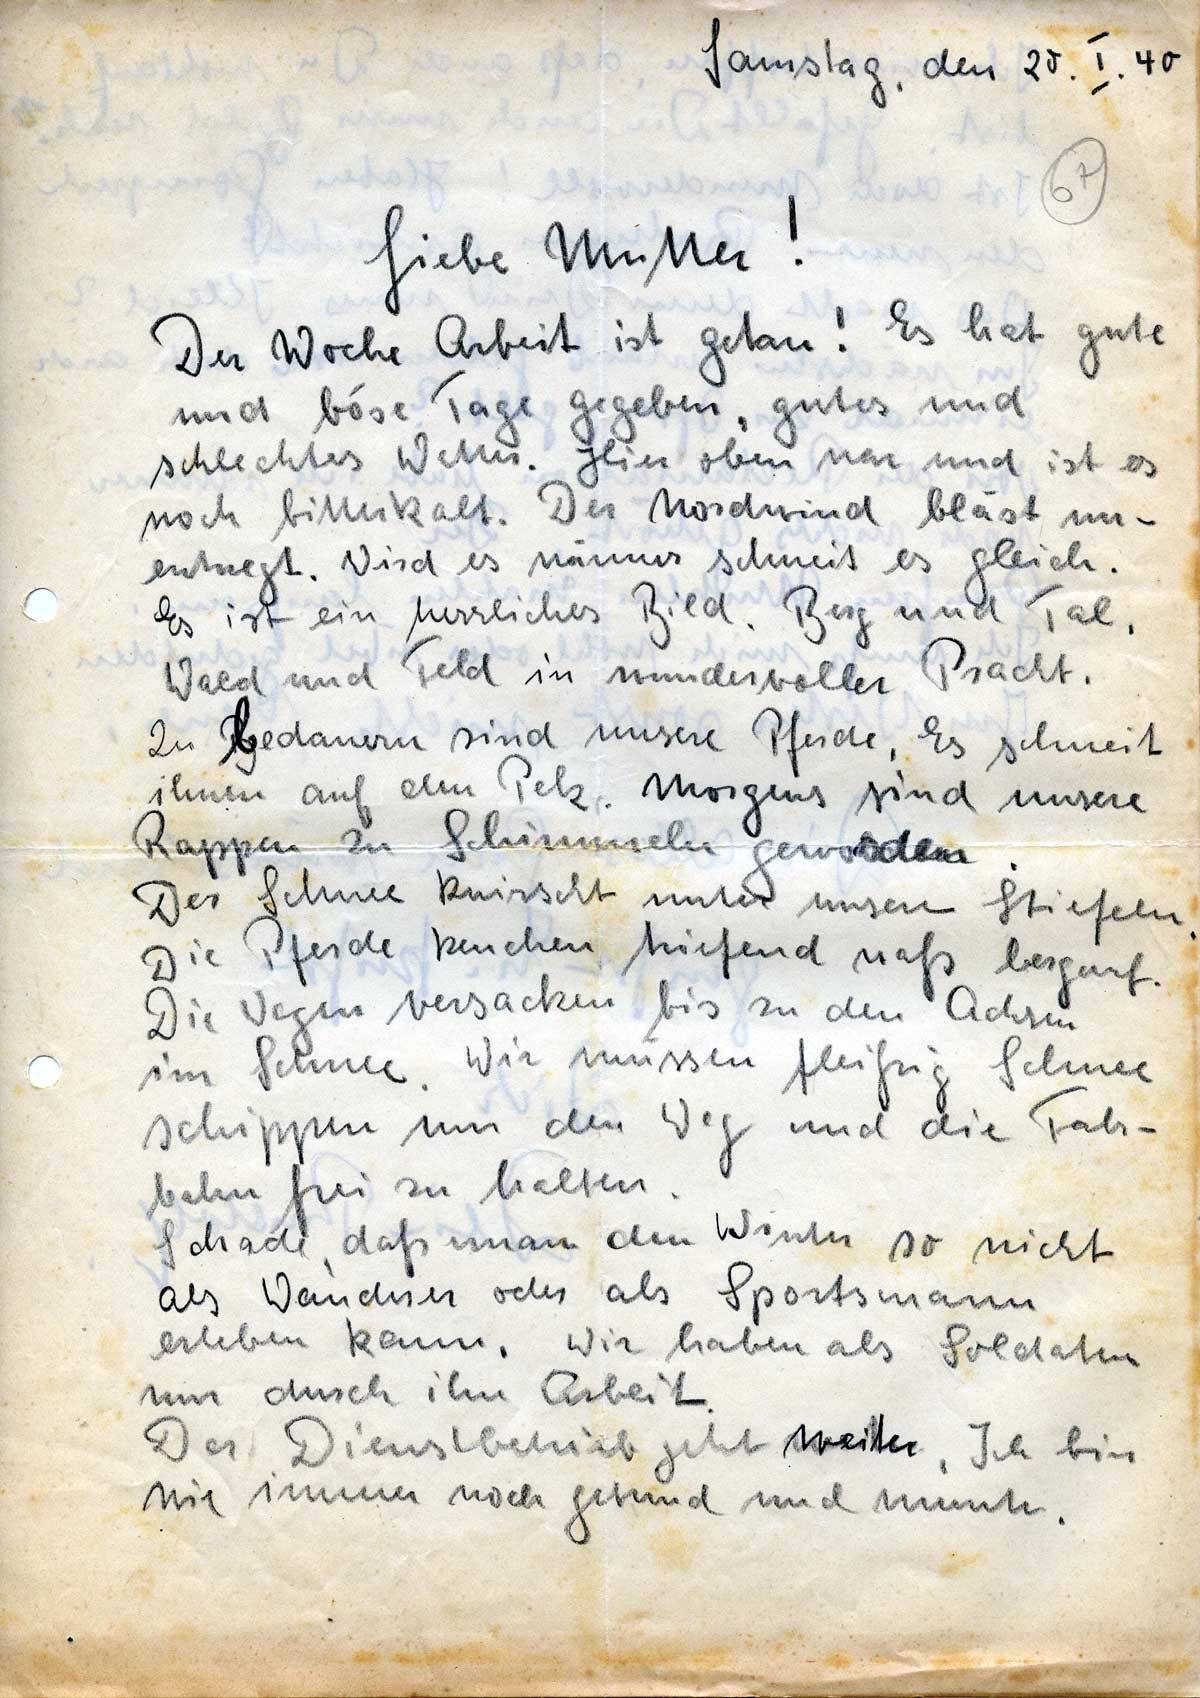 Samstag, den 20. I. 40
67
Liebe Mutter!
Der Woche Arbeit ist getan! Es hat gute
und böse Tage gegeben, gutes und
schlechtes Wetter. Hier oben war und ist es
noch bitterkalt. Der Nordwind bläst un-
entwegt. Wird es wärmer schneit es gleich.
Es ist ein herrliches Bild. Berg und Tal,
Wald und Feld in wundervoller Pracht.
Zu bedauern sind unsere Pferde. Es schneit
ihnen auf den Pelz. Morgens sind unsere
Rappen zu Schimmeln geworden.
Der Schnee knirscht unter unsern Stiefeln.
Die Pferde keuchen triefend naß bergauf.
Die Wagen versacken bis zu den Achsen
im Schnee. Wir müssen fleißig Schnee
schippen um den Weg und die Fahr-
bahn frei zu halten.
Schade, daß man den Winter so nicht
als Wandrer oder als Sportsmann
erleben kann. Wir haben als Soldaten
nur durch ihn Arbeit.
Der Dienstbetrieb geht weiter. Ich bin
wie immer noch gesund und munter.